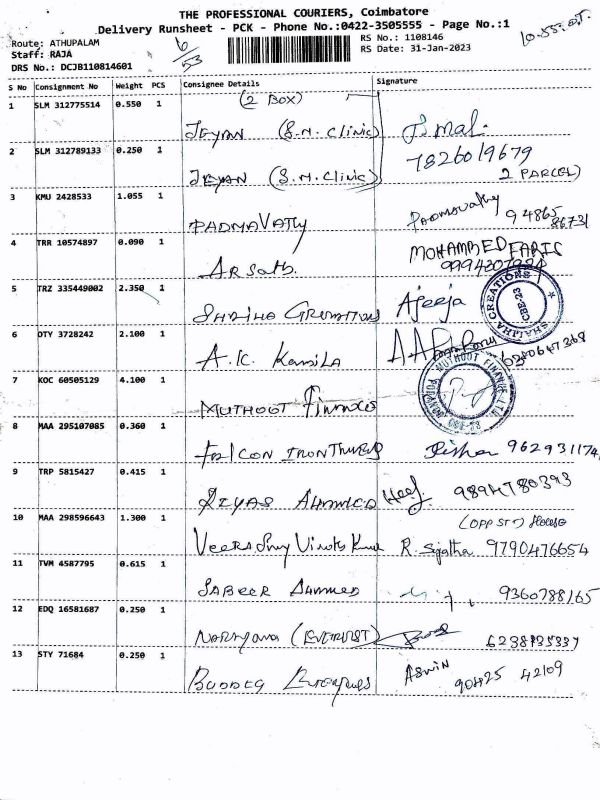 THE PROFESSIONAL COURIERS, Coimbatore
Delivery Runsheet - PCK - Phone No.:0422-3505555 - Page No.:1
Route: ATHUPALAM
Staff: RAJA
DRS No.: DCJB110814601
6/53
RS No.: 1108146
RS Date: 31-Jan-2023
S No Consignment No Weight PCS Consignee Details Signature
1 SLM 312775514 0.550 1 (2 BOX)
JEYAN (S.M. Clinic)
7826019679
2 SLM 312789133 0.250 1
JEYAN (S.M. Clinic) 2 PARCEL)
3 KMU 2428533 1.055 1
PADMAVATHY Padmavathy 94865 86731
4 TRR 10574897 0.090 1
ARSATH. MOHAMMED FARIS
5 TRZ 335449002 2.350 1
Ajeeja
SHAIHA CREATIONS CBE-23
6 DTY 3728242 2.100 1
A.K. Kamila
7 KOC 60505129 4.100 1
MUTHOOT Finances
MUTHOOT FINANCE LTD. CBE-23
8 MAA 295107085 0.360 1
9 TRP 5815427 0.415 1
RIYAS AHAMMED 9894780393
10 MAA 298596643 1.300 1
(OPP ST) House
R. Sujatha 9790476654
11 TVM 4587795 0.615 1
SABEER AHAMMED 9360788165
12 EDQ 16581687 0.250 1
NARAYANA
13 STY 71684 0.250 1
ASWIN 90425 42109